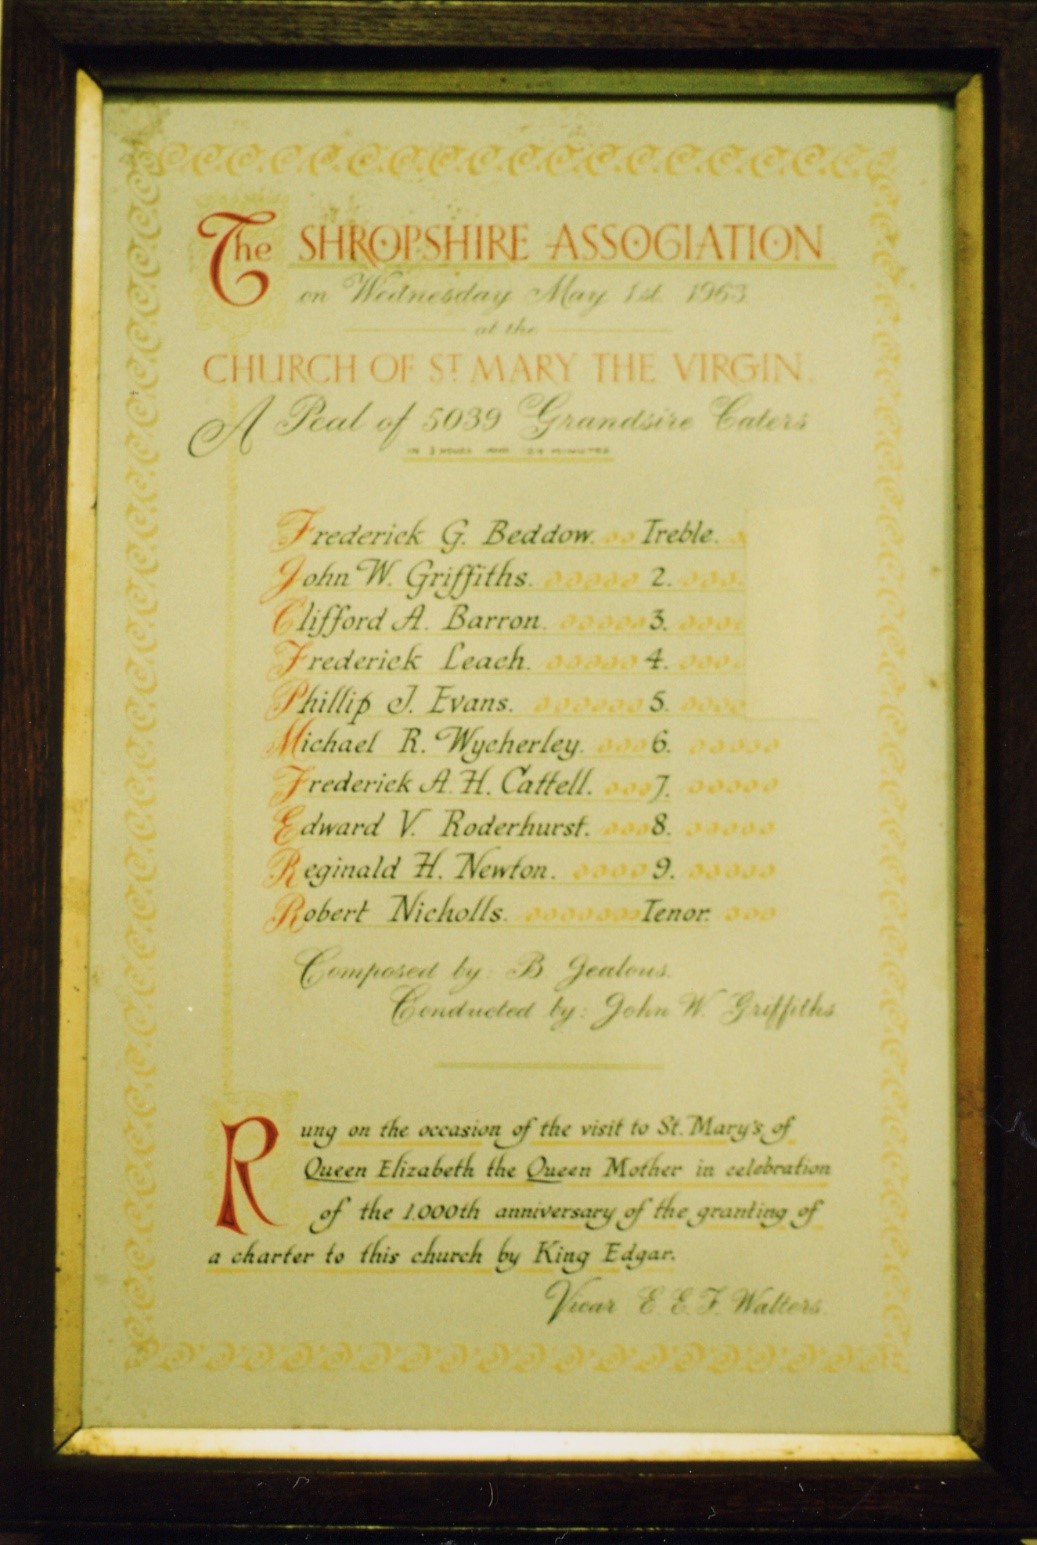 The SHROPSHIRE ASSOCIATION
on Wednesday May 1st. 1963.
at the
CHURCH OF ST MARY THE VIRGIN.
A Peal of 5039 Grandsire Caters
IN 3 HOURS AND MINUTES
Frederick G. Beddow. Treble.
John W. Griffiths. 2.
Clifford A. Barron. 3.
Frederick Leach. 4.
Phillip J. Evans. 5.
Michael R. Wycherley. 6.
Frederick A. H. Cattell. 7.
Edward V. Roderhurst. 8.
Reginald H. Newton. 9.
Robert Nicholls. Tenor.
Composed by: B. Jealous.
Conducted by: John W. Griffiths
Rung on the occasion of the visit to St. Mary's of
Queen Elizabeth the Queen Mother in celebration
of the 1,000th anniversary of the granting of
a charter to this church by King Edgar.
Vicar E. E. F. Walters.